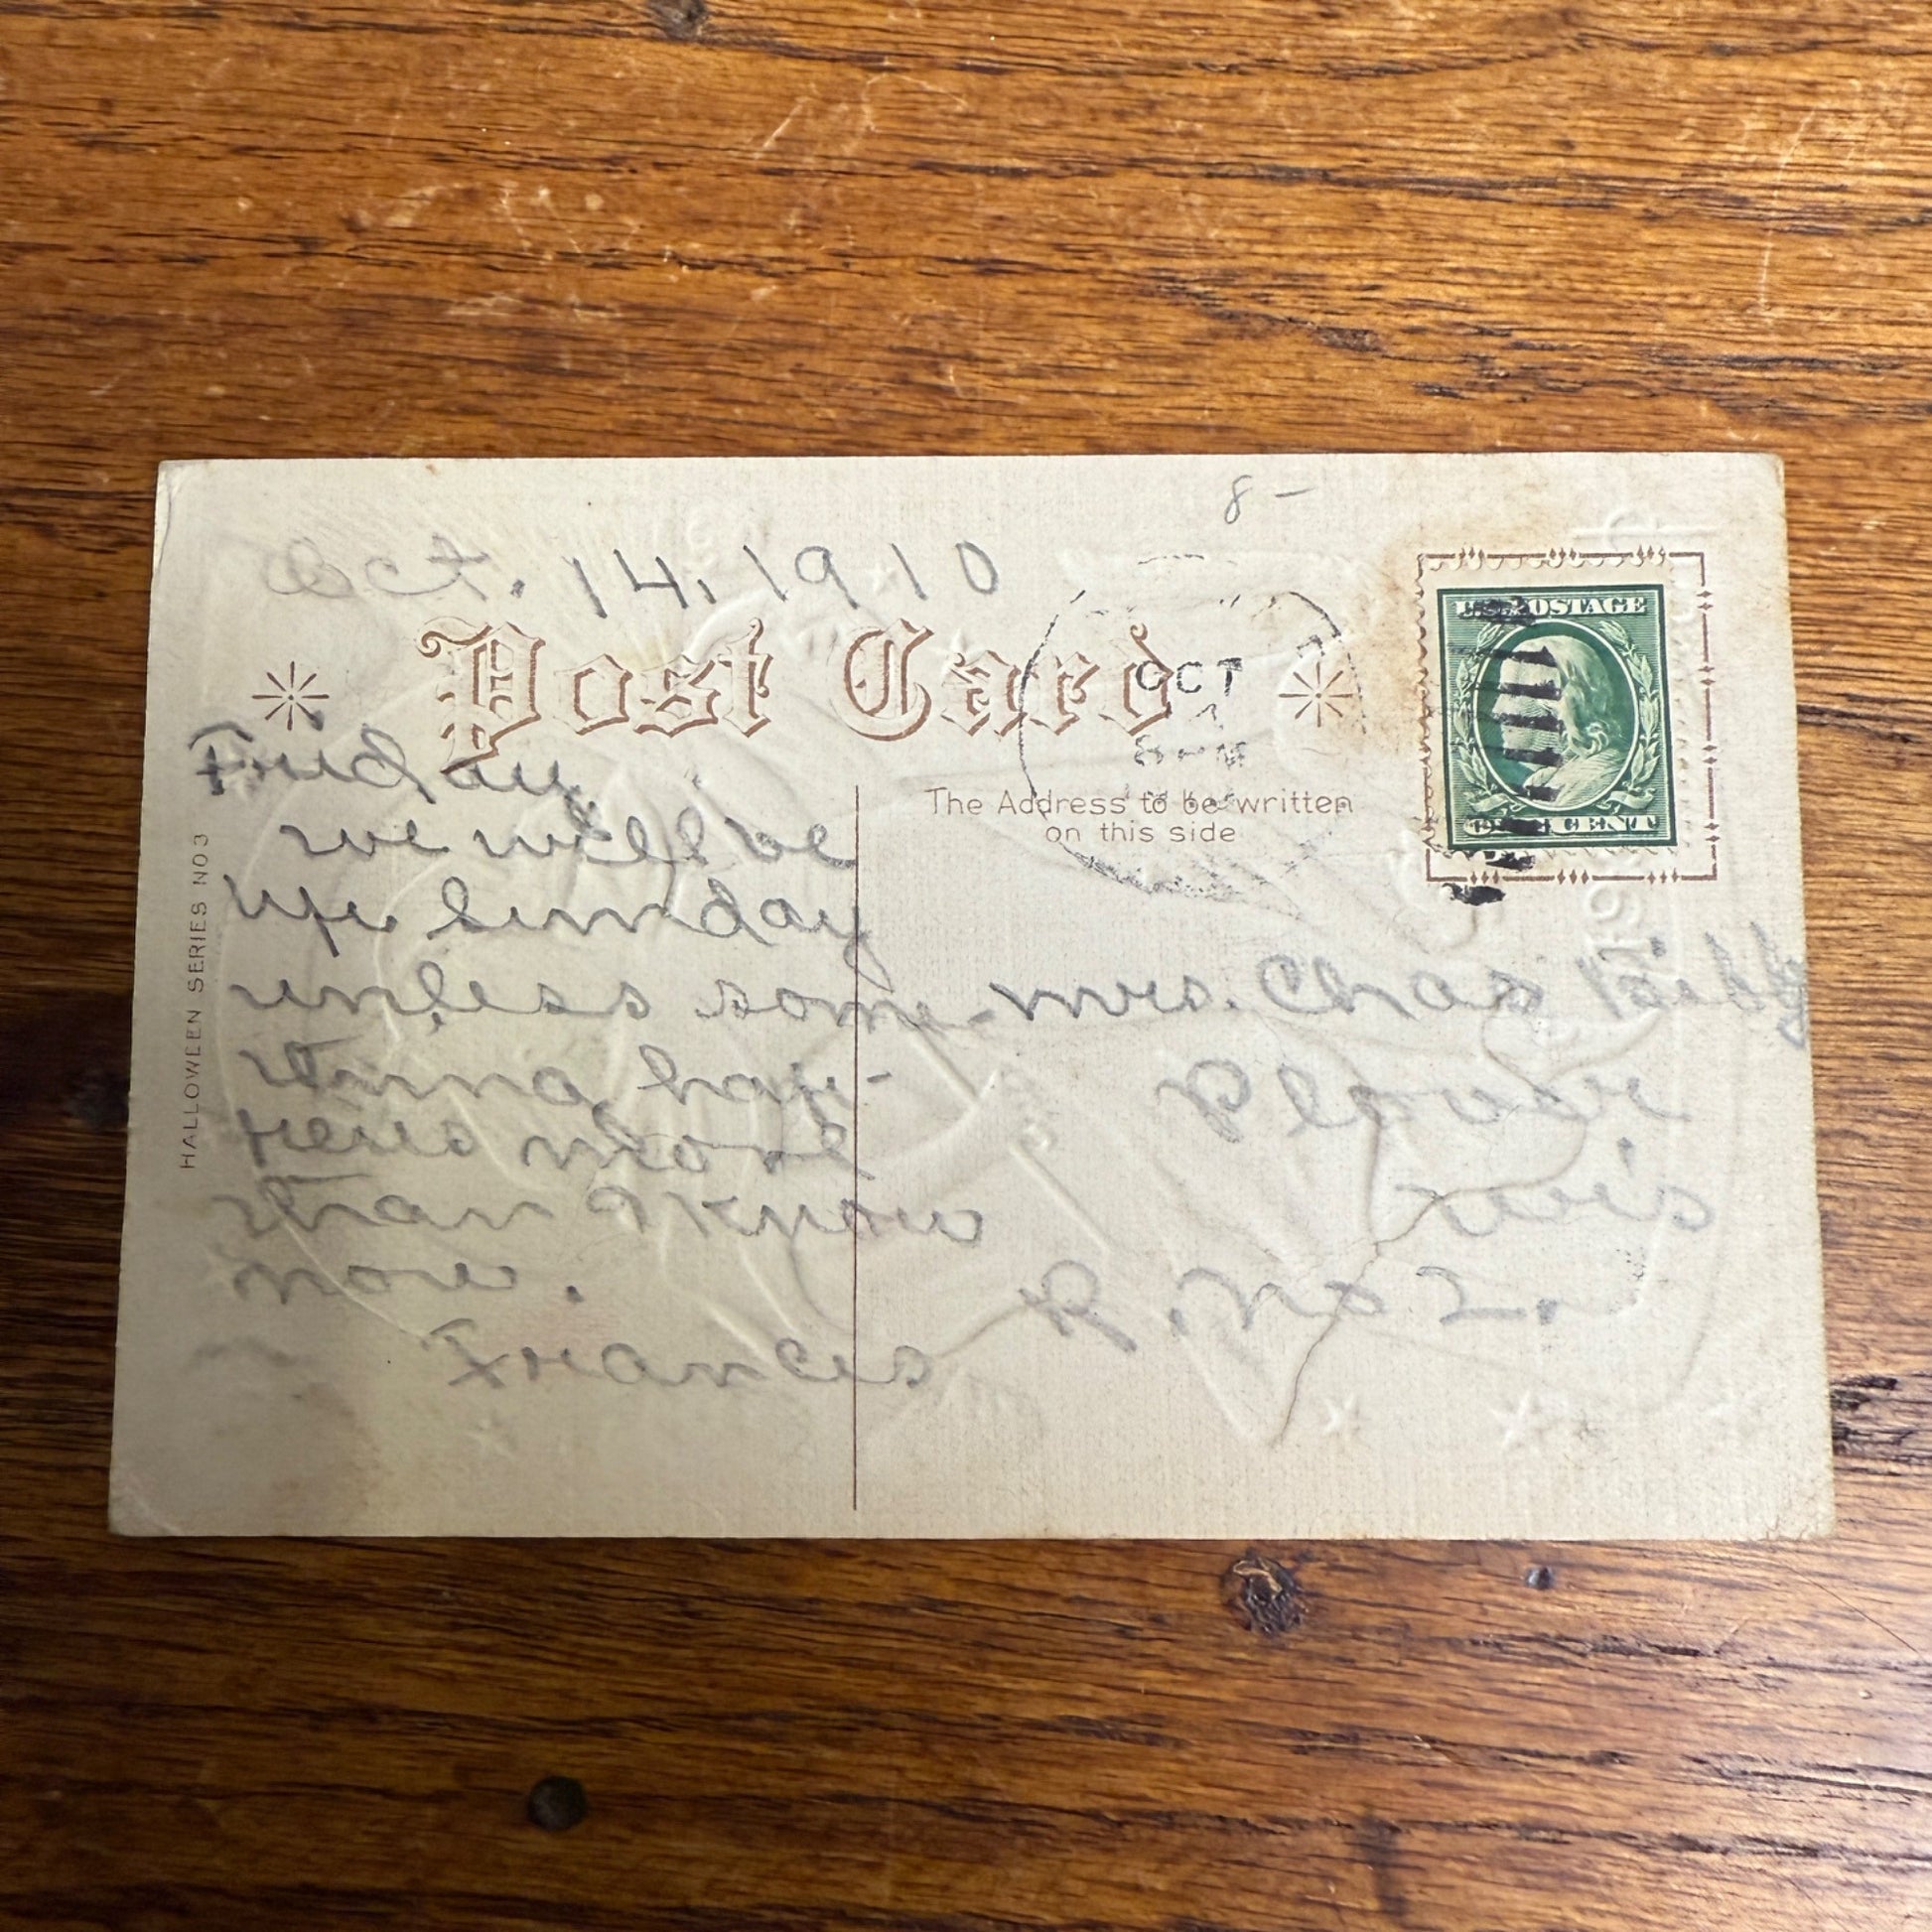 8-
Oct. 14, 1910
Post Card
Friday,
we will be
up Sunday
unless some-
thing hap-
pens more
than I know
now.
Frances
HALLOWEEN SERIES NO3
OCT
The Address to be written
on this side
U.S. POSTAGE
ONE CENT
Mrs. Chas
Plover
Wis
R. No 2.